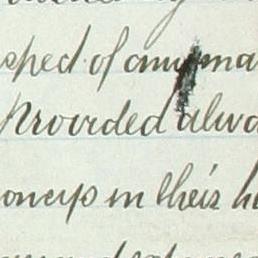 sped of any ma
Provided alwa
oneys in their h